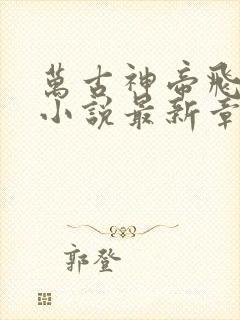 萬古神帝飛
小說最新章
郭登